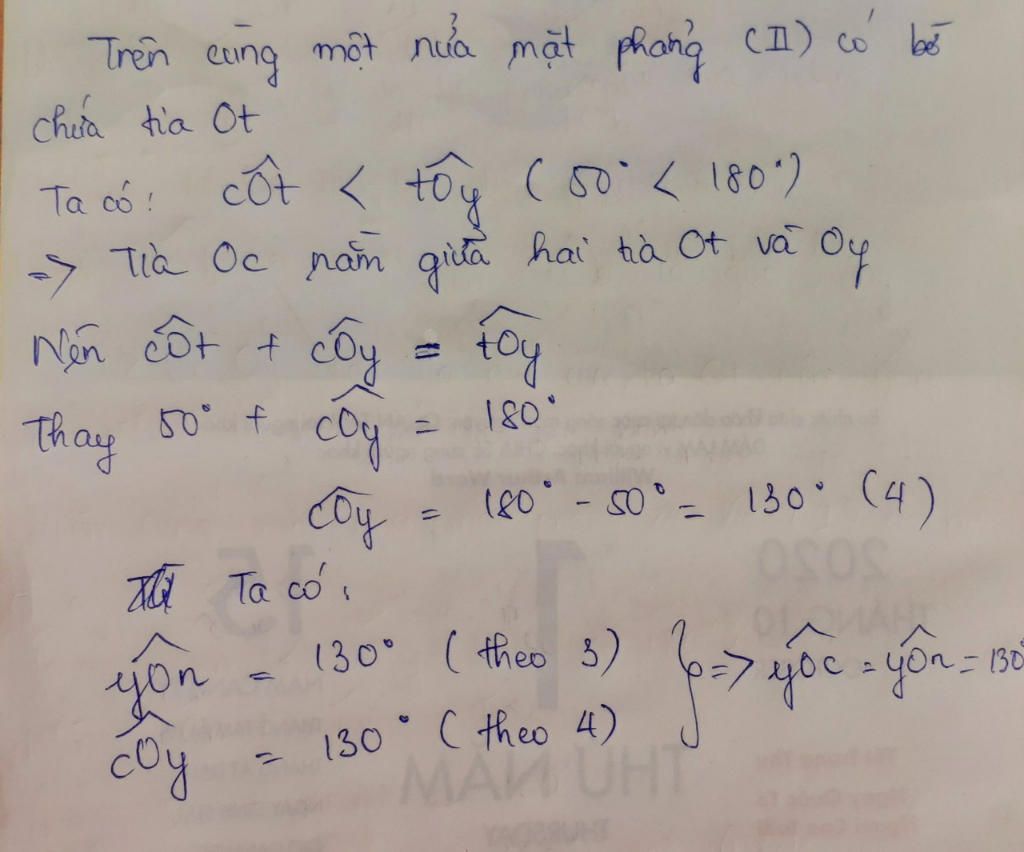 Trên cùng một nửa mặt phẳng (II) có bờ
chứa tia Ot
Ta có: cÔt < tÔy (50° < 180°)
=> Tia Oc nằm giữa hai tia Ot và Oy
Nên cÔt + cÔy = tÔy
Thay 50° + cÔy = 180°
cÔy = 180° - 50° = 130° (4)
Ta có:
yÔn = 130° (theo 3)
cÔy = 130° (theo 4)
} => yÔc = yÔn = 130°
2020
THÁNG 10
1
15
THỨ NĂM
THURSDAY
William Arthur Ward